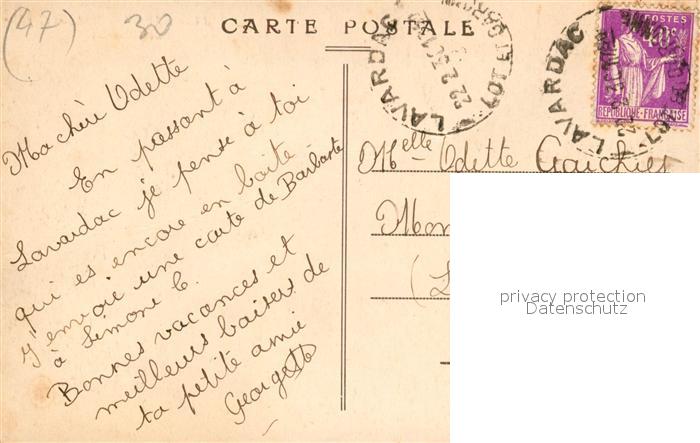 (47)
30
CARTE POSTALE
LAVARDAC
LOT ET GARONNE
LAVARDAC
POSTES
40c
REPUBLIQUE-FRANÇAISE
Ma chère Odette
En passant à
Lavardac je pense à toi
qui es encore en boite
J'envoie une carte de Barbaste
à Simone C.
Bonnes vacances et
meilleurs baisers de
ta petite amie
Georgette
Melle Odette
Mon
(L
privacy protection
Datenschutz